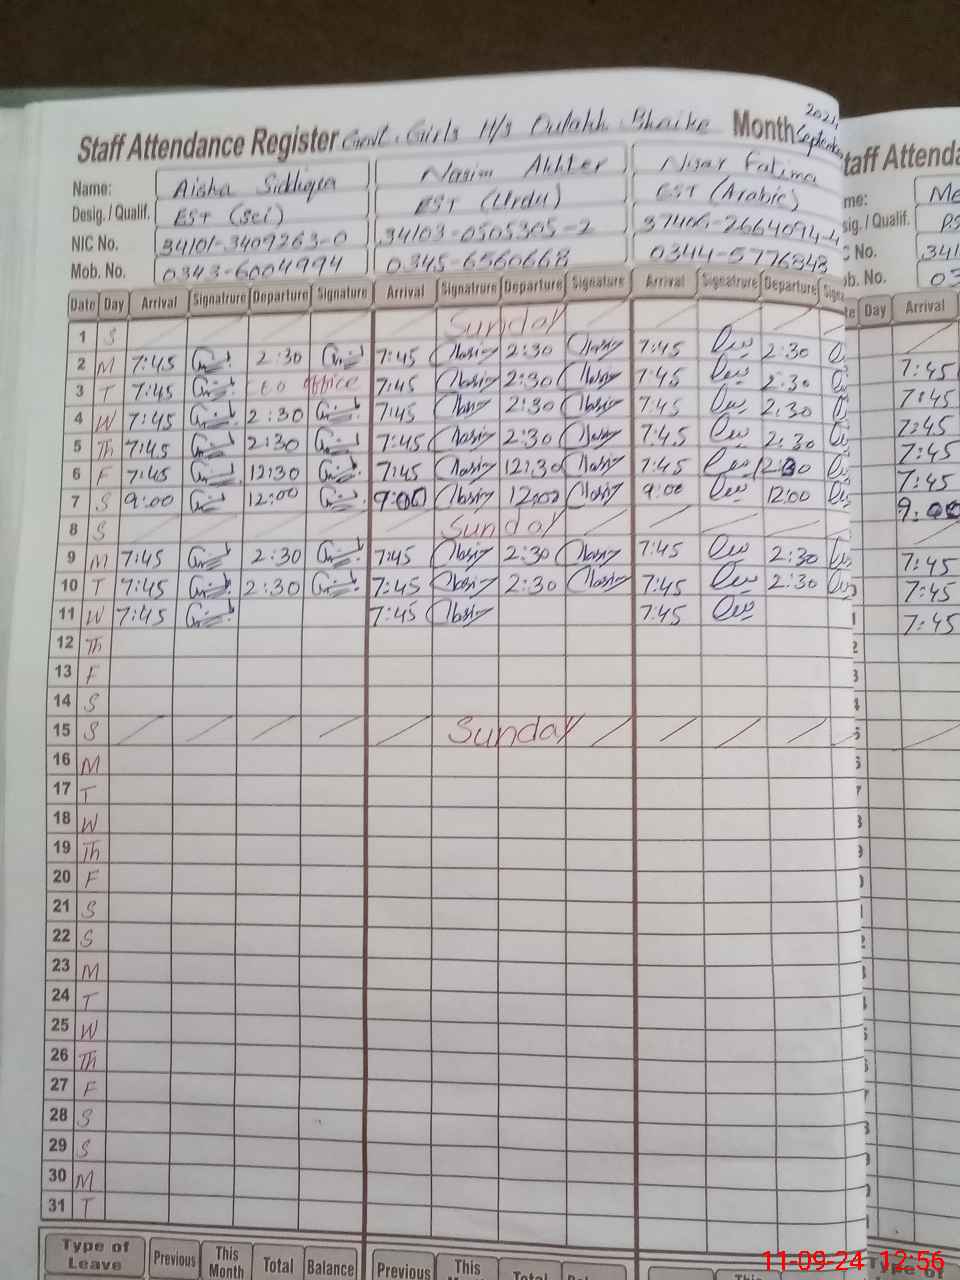 Staff Attendance Register Govt. Girls H/S Dulakh Bhaike Month September 2024
Name: Aisha Siddiqa Nasim Akhter Nisar Fatima
Desig. / Qualif. EST (Sci) EST (Urdu) EST (Arabic)
NIC No. 34101-3409263-0 34103-0505305-2 37406-2664094-4
Mob. No. 0343-6004994 0345-6560668 0344-5776848
Date Day Arrival Signatrure Departure Signature Arrival Signatrure Departure Signature Arrival Signatrure Departure
1 S Sunday
2 M 7:45 2:30 7:45 2:30 7:45 2:30
3 T 7:45 office 7:45 2:30 7:45 2:30
4 W 7:45 2:30 7:45 2:30 7:45 2:30
5 Th 7:45 2:30 7:45 2:30 7:45 2:30
6 F 7:45 12:30 7:45 12:30 7:45 12:30
7 S 9:00 12:00 9:00 12:00 9:00 12:00
8 S Sunday
9 M 7:45 2:30 7:45 2:30 7:45 2:30
10 T 7:45 2:30 7:45 2:30 7:45 2:30
11 W 7:45 7:45 7:45
12 Th
13 F
14 S
15 S Sunday
16 M
17 T
18 W
19 Th
20 F
21 S
22 S
23 M
24 T
25 W
26 Th
27 F
28 S
29 S
30 M
31 T
Type of Leave Previous This Month Total Balance Previous This Total
taff Attenda
me:
sig. / Qualif.
No.
ob. No.
Day Arrival
7:45
7:45
7:45
7:45
7:45
9:00
7:45
7:45
7:45
11-09-24 12:56